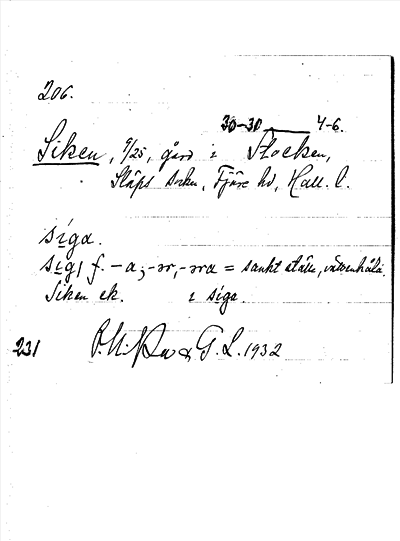 206.
30-30 4-6.
Siken, 9/25, gård i Stocken,
Släps socken, Fjäre hd, Hall. l.
síga.
síg, f. -a, -ər, -əra = sankt ställe, vattenhåla.
Siken ek. i síga.
231 & G. L. 1932